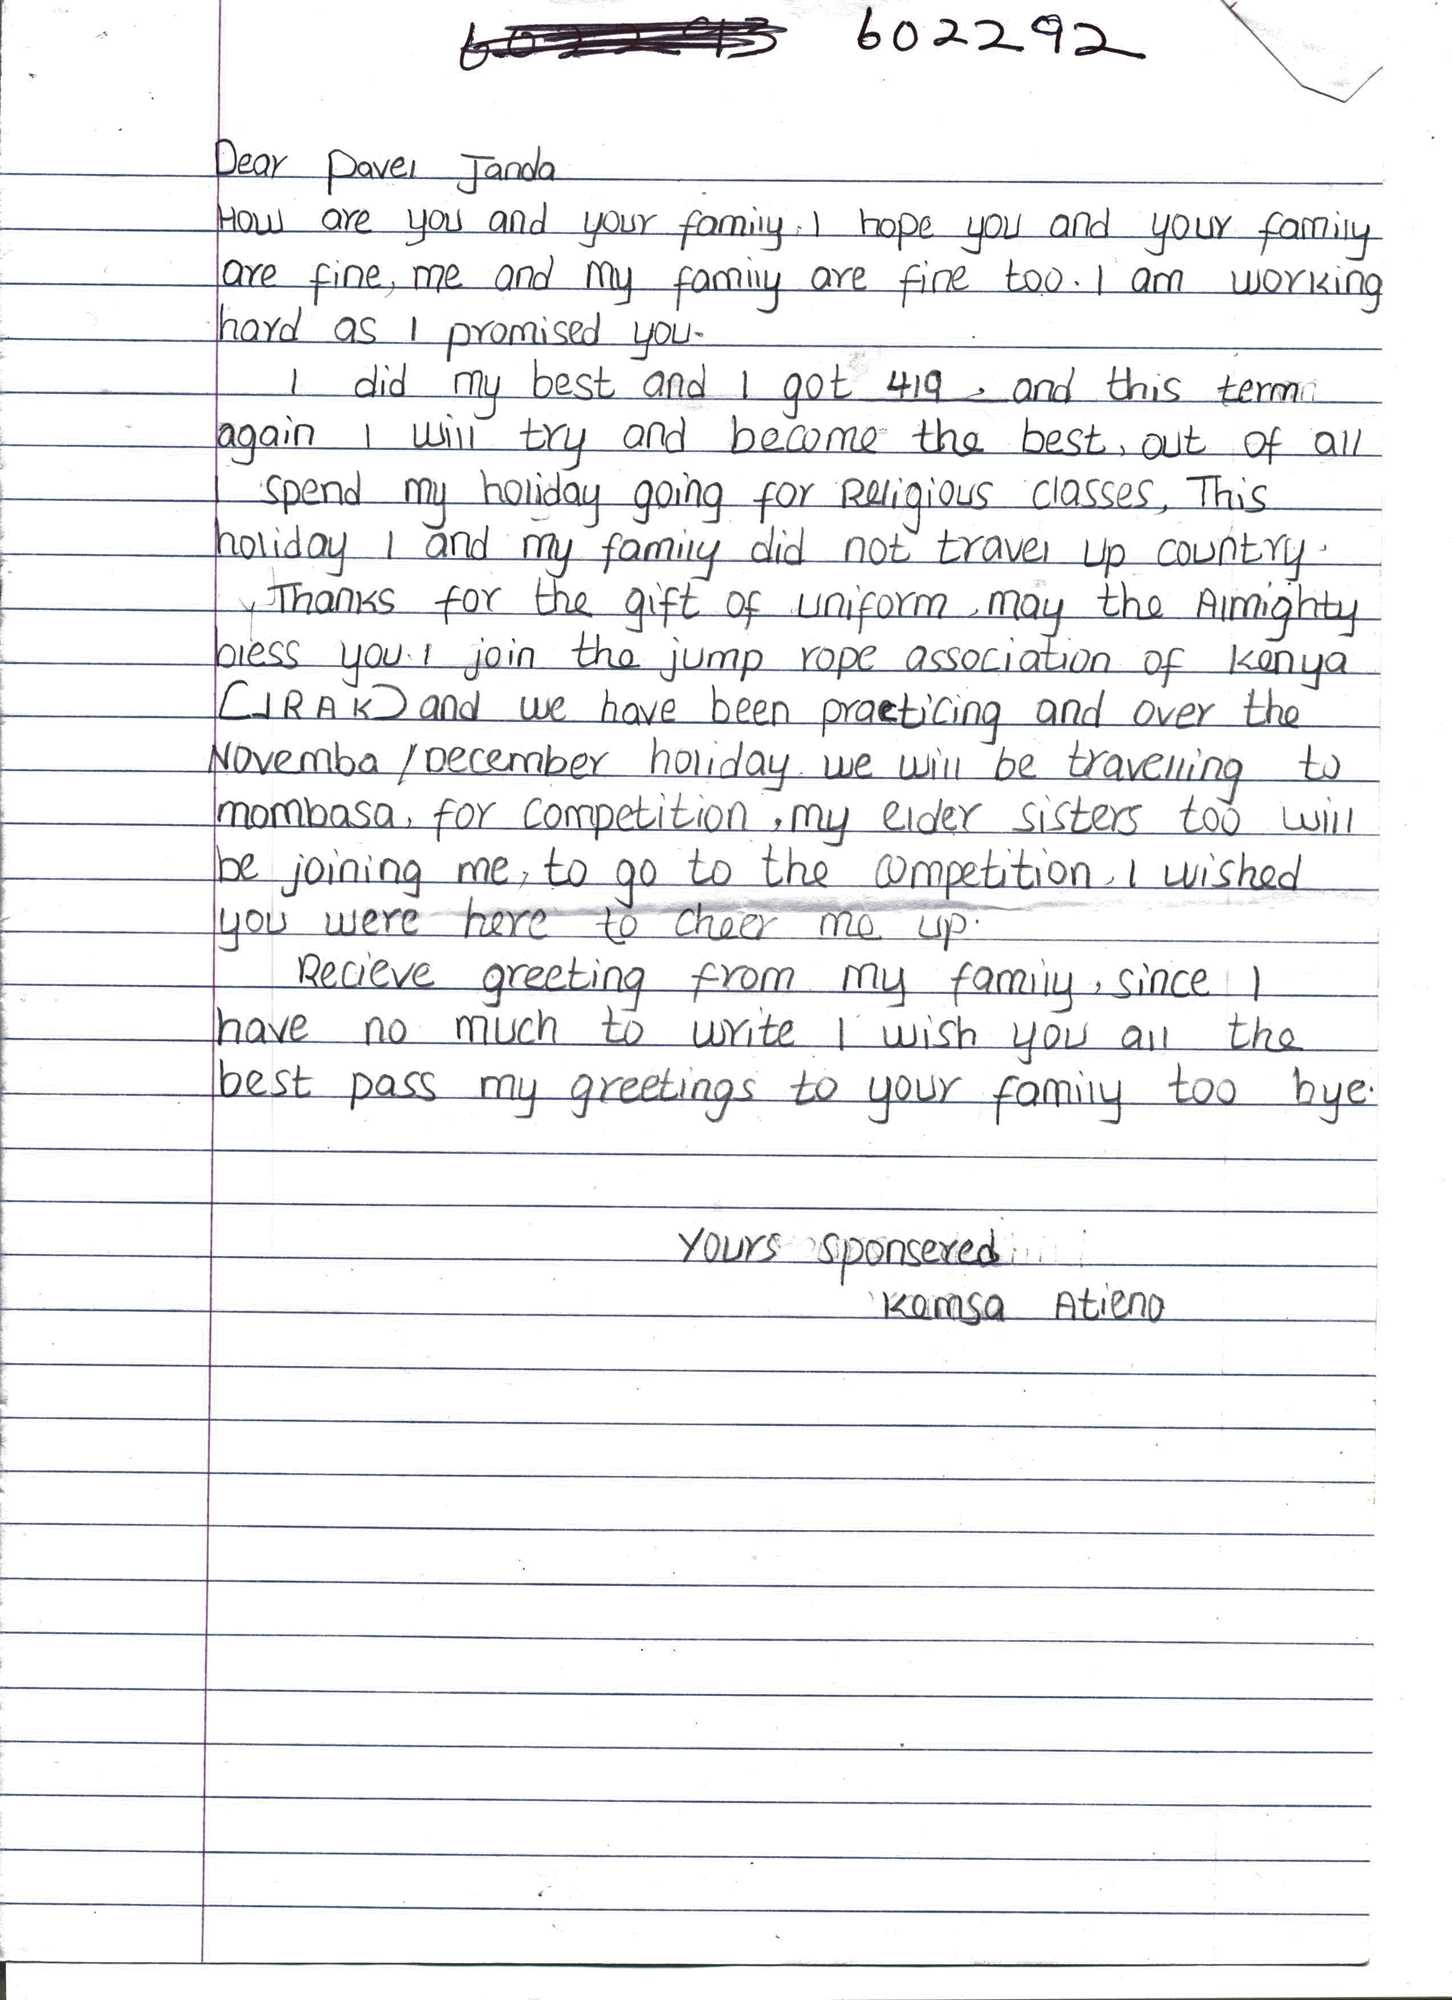 602293 602292
Dear Pavel Janda
How are you and your family. I hope you and your family
are fine, me and my family are fine too. I am working
hard as I promised you.
I did my best and I got 419, and this term
again I will try and become the best, out of all
I spend my holiday going for Religious classes, This
holiday I and my family did not travel up country.
Thanks for the gift of uniform, may the Almighty
bless you. I join the jump rope association of Kenya
(JRAK) and we have been practicing and over the
Novemba / December holiday we will be travelling to
mombasa, for competition, my elder sisters too will
be joining me, to go to the competition, I wished
you were here to cheer me up.
Recieve greeting from my family, since I
have no much to write I wish you all the
best pass my greetings to your family too bye.
Yours sponsered
Kamsa Atieno